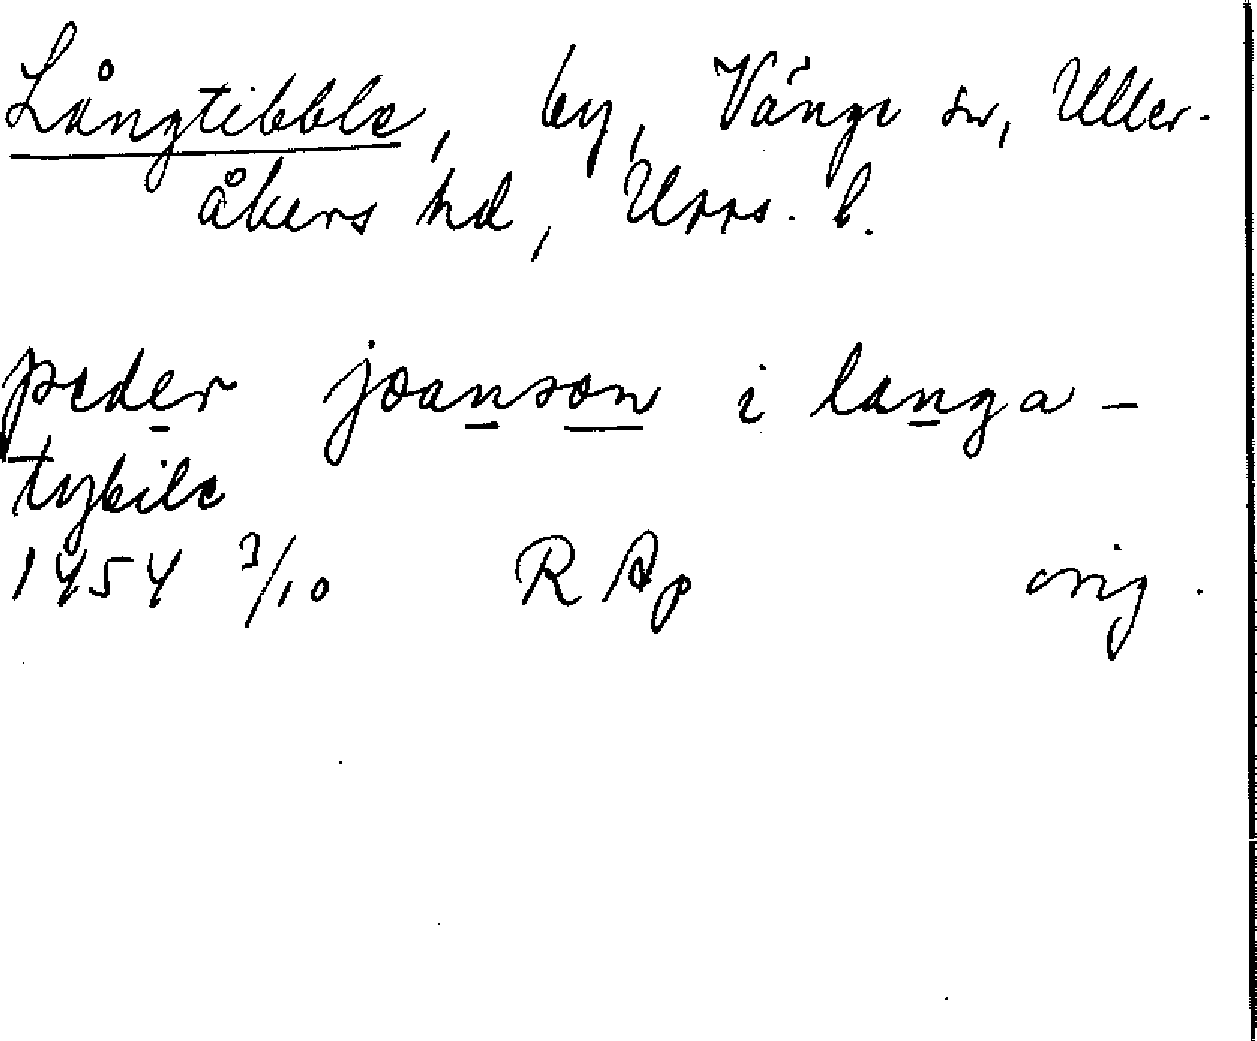 Långtibble, by, Vänge sn, Uller-
åkers hd, Upps. l.
peder joanson i langa-
tybile
1454 3/10 R Ap orig.